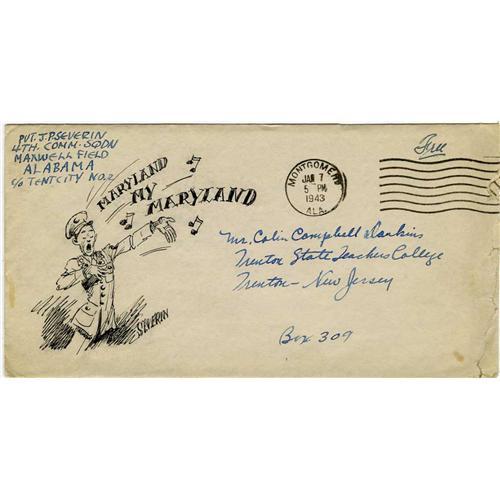 PVT. J.P. SEVERIN
4TH. COMM. SQDN
MAXWELL FIELD
ALABAMA
C/O TENT CITY NO. 2
MARYLAND
MY
MARYLAND
SEVERIN
MONTGOMERY
JAN 7
5 PM
1943
ALA.
Free
Mr. Colin Campbell
Trenton State Teachers College
Trenton - New Jersey
Box 309